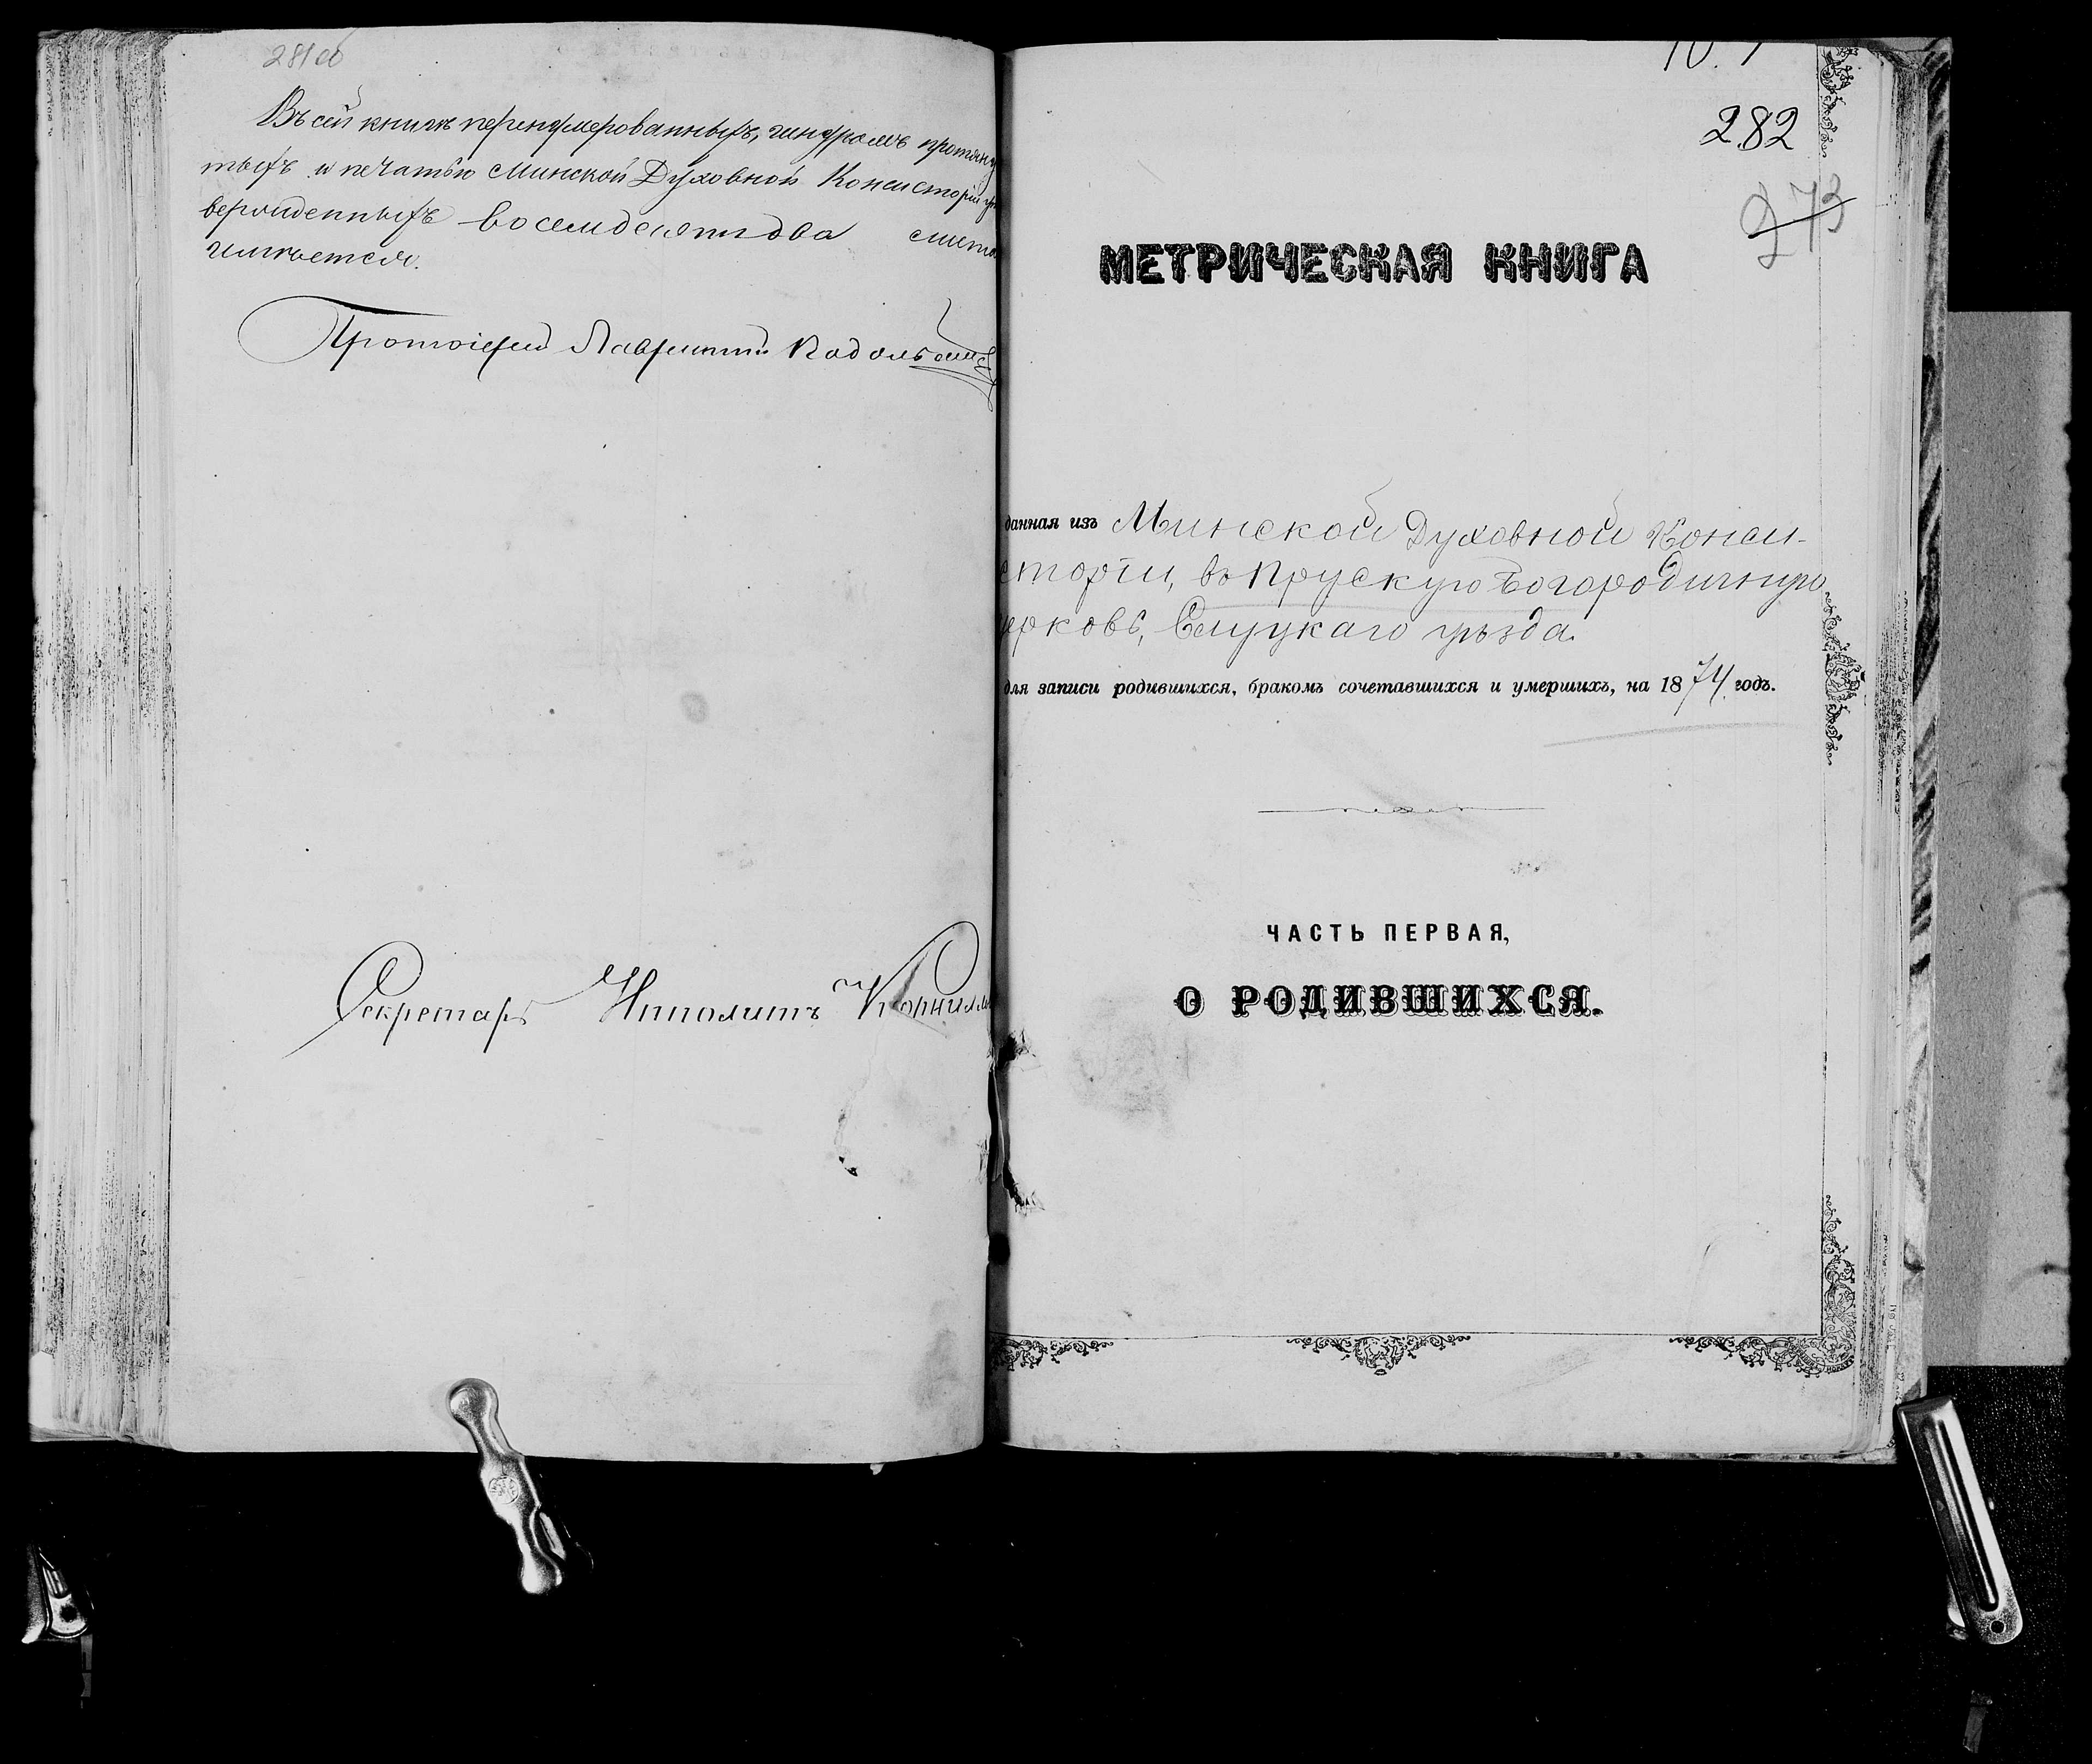 281об
Въ сей книгѣ перенумерованныхъ, шнуромъ протяну
тыхъ и печатью Минской Духовной Консисторіи ут
вержденныхъ восемдесятъ два листа
числится.
Протоіерей Лаврентій
Секретарь Ипполитъ
282
273
МЕТРИЧЕСКАЯ КНИГА
данная изъ Минской Духовной Конси-
сторіи, въ Прускую Богородичную
церковь, Слуцкаго уѣзда.
для записи родившихся, бракомъ сочетавшихся и умершихъ, на 1874 годъ.
ЧАСТЬ ПЕРВАЯ,
О РОДИВШИХСЯ.